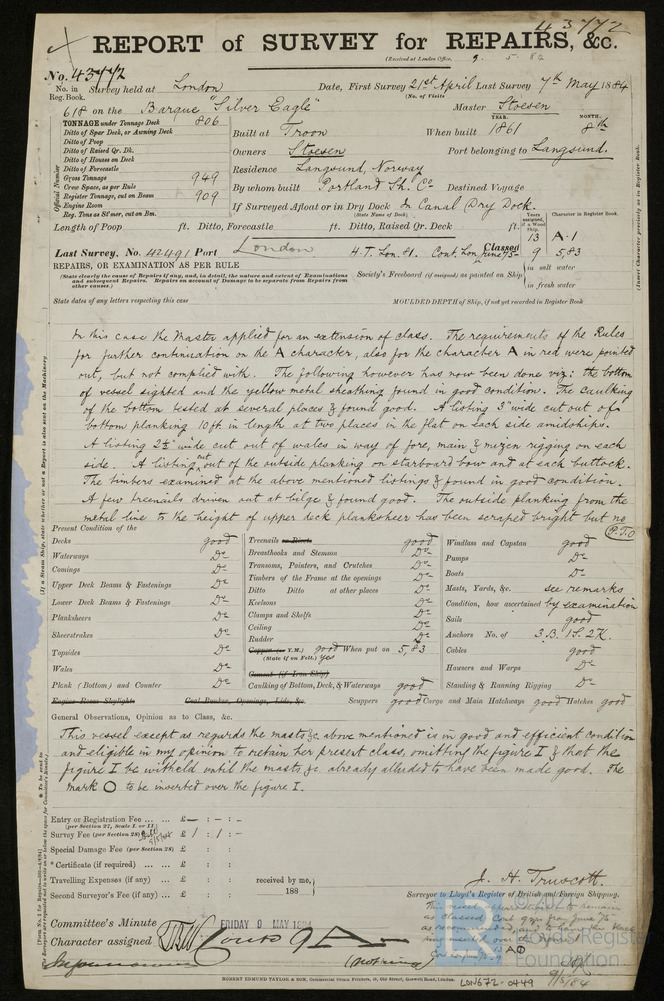 43772
REPORT of SURVEY for REPAIRS, &c.
(Received at London Office, 9. 5. 84
No. 43772
No. in Reg. Book. Survey held at London Date, First Survey 21st April Last Survey 7th May 1884
(No. of Visits)
618 on the Barque "Silver Eagle" Master Stoesen
TONNAGE under Tonnage Deck 806
Ditto of Spar Deck, or Awning Deck
Ditto of Poop
Ditto of Raised Qr. Dk.
Ditto of Houses on Deck
Ditto of Forecastle
Gross Tonnage 949
Crew Space, as per Rule
Register Tonnage, cut on Beam 909
Engine Room
Reg. Tons as St'mer, cut on Bm.
Official Number
Built at Troon When built YEAR. 1861 MONTH. 8th
Owners Stoesen Port belonging to Langsund.
Residence Langsund, Norway
By whom built Portland Sh. Co Destined Voyage
If Surveyed Afloat or in Dry Dock In Canal Dry Dock.
(State Name of Dock)
Length of Poop ft. Ditto, Forecastle ft. Ditto, Raised Qr. Deck ft.
Years assigned, if a Wood Ship. Character in Register Book.
13 A·1
Last Survey, No. 42491 Port London 4.T. Lon. 81. Cont. Lon. June 75– Classed 9 5,83
(Insert Character precisely as in Register Book.
REPAIRS, OR EXAMINATION AS PER RULE
(State clearly the cause of Repairs if any, and, in detail, the nature and extent of Examinations and subsequent Repairs. Repairs on account of Damage to be separate from Repairs from other causes.)
Society's Freeboard (if assigned) as painted on Ship in salt water
in fresh water
State dates of any letters respecting this case MOULDED DEPTH of Ship, if not yet recorded in Register Book
In this case the Master applied for an extension of class. The requirements of the Rules
for further continuation on the A character, also for the character A in red were pointed
out, but not complied with. The following however has now been done viz: the bottom
of vessel sighted and the yellow metal sheathing found in good condition. The caulking
of the bottom tested at several places & found good. A listing 3" wide cut out of
bottom planking 10ft in length at two places in the flat on each side amidships.
A listing 2½" wide cut out of wales in way of fore, main & mizen rigging on each
side. A listing cut out of the outside planking on starboard bow and at each buttock.
The timbers examined at the above mentioned listings & found in good condition.
A few treenails driven out at bilge & found good. The outside planking from the
metal line to the height of upper deck planksheer has been scraped bright but no
P.T.O
Present Condition of the
Decks good
Waterways Do
Comings Do
Upper Deck Beams & Fastenings Do
Lower Deck Beams & Fastenings Do
Planksheers Do
Sheerstrakes Do
Topsides Do
Wales Do
Plank (Bottom) and Counter Do
Engine Room Skylights
Treenails or Rivets good
Breasthooks and Stemson Do
Transoms, Pointers, and Crutches Do
Timbers of the Frame at the openings Do
Ditto Ditto at other places Do
Keelsons Do
Clamps and Shelfs Do
Ceiling Do
Rudder Do
Copper (or Y.M.) good When put on 5,83
(State if on Felt.) Yes
Cement (if Iron Ship)
Caulking of Bottom, Deck, & Waterways good
Coal Bunker, Openings, Lids, &c.
Scuppers good
Windlass and Capstan good
Pumps Do
Boats Do
Masts, Yards, &c. see remarks
Condition, how ascertained by examination
Sails good
Anchors No. of 3.B. 1S. 2K.
Cables good
Hawsers and Warps Do
Standing & Running Rigging Do
Cargo and Main Hatchways good Hatches good
General Observations, Opinion as to Class, &c.
This vessel except as regards the masts &c above mentioned is in good and efficient condition
and eligible in my opinion to retain her present class, omitting the figure 1 & that the
figure 1 be witheld until the masts &c already alluded to have been made good. The
mark O to be inserted over the figure 1.
Entry or Registration Fee £ — : — : —
(per Section 27, Scale I. or II.)
Survey Fee (per Section 28) £ 1 : 1 : —
Special Damage Fee (per Section 28) £ : :
* Certificate (if required) £ : :
Travelling Expenses (if any) £ : :
Second Surveyor's Fee (if any) £ : :
received by me,
188
J. H. Truscott.
Surveyor to Lloyd's Register of British and Foreign Shipping.
Committee's Minute FRIDAY 9 MAY 1884
Character assigned Cont 9 A —
9/5/84
Lloyd's Register
Foundation
ROBERT EDMUND TAYLOR & SON, Commercial Steam Printers, 19, Old Street, Goswell Road, London.
LON672-0449